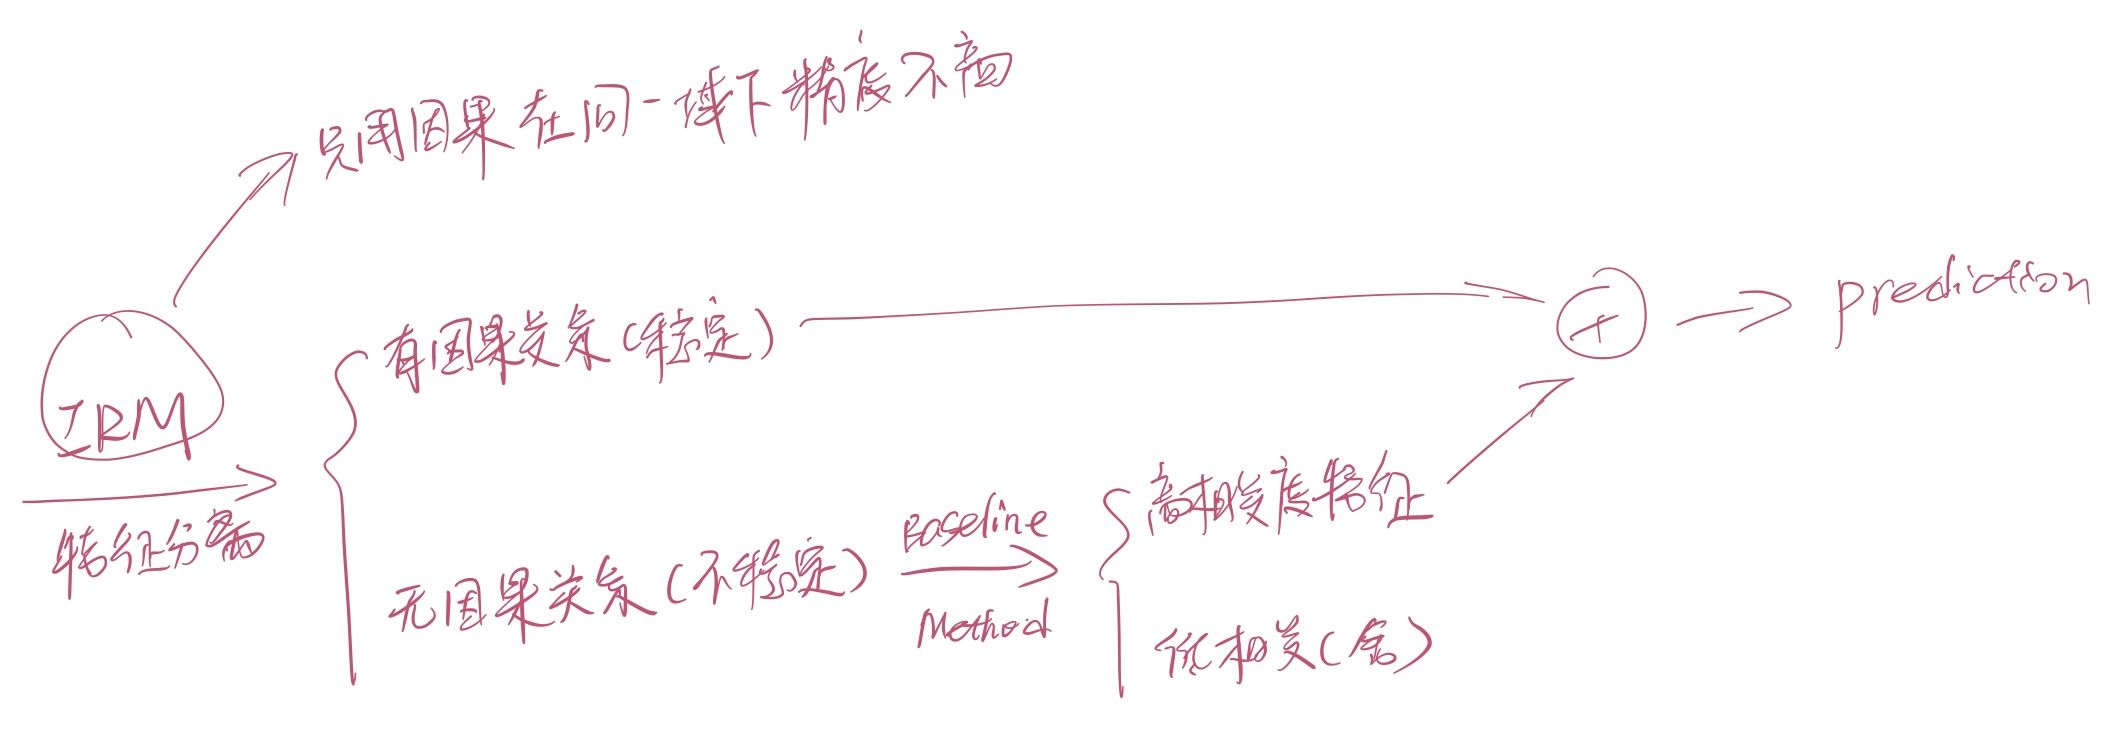 只用因果在同一域下精度不高
IRM
特征分离
有因果关系(稳定)
无因果关系(不稳定)
Baseline
Method
高相关度特征
低相关(舍)
+
prediction